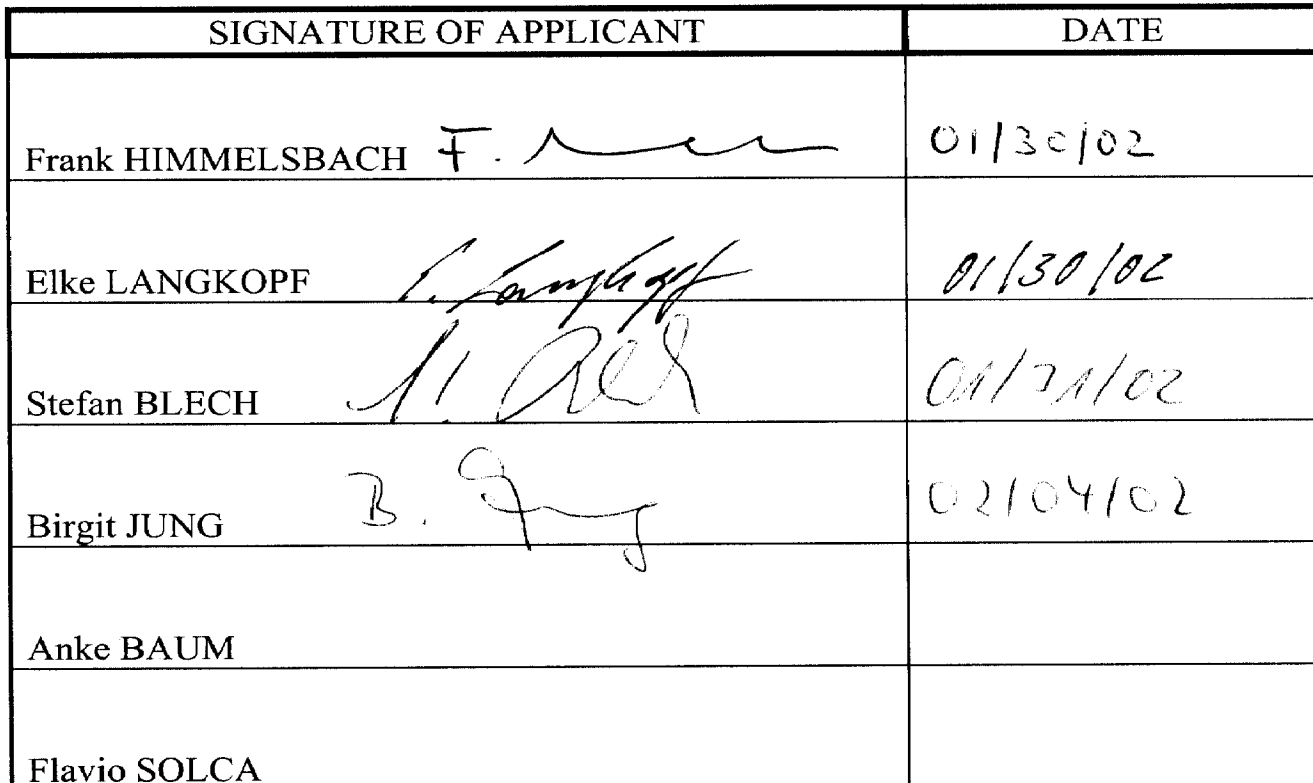 SIGNATURE OF APPLICANT DATE
Frank HIMMELSBACH F. 01/30/02
Elke LANGKOPF E. Langkopf 01/30/02
Stefan BLECH 01/31/02
Birgit JUNG B. Jung 02/04/02
Anke BAUM
Flavio SOLCA